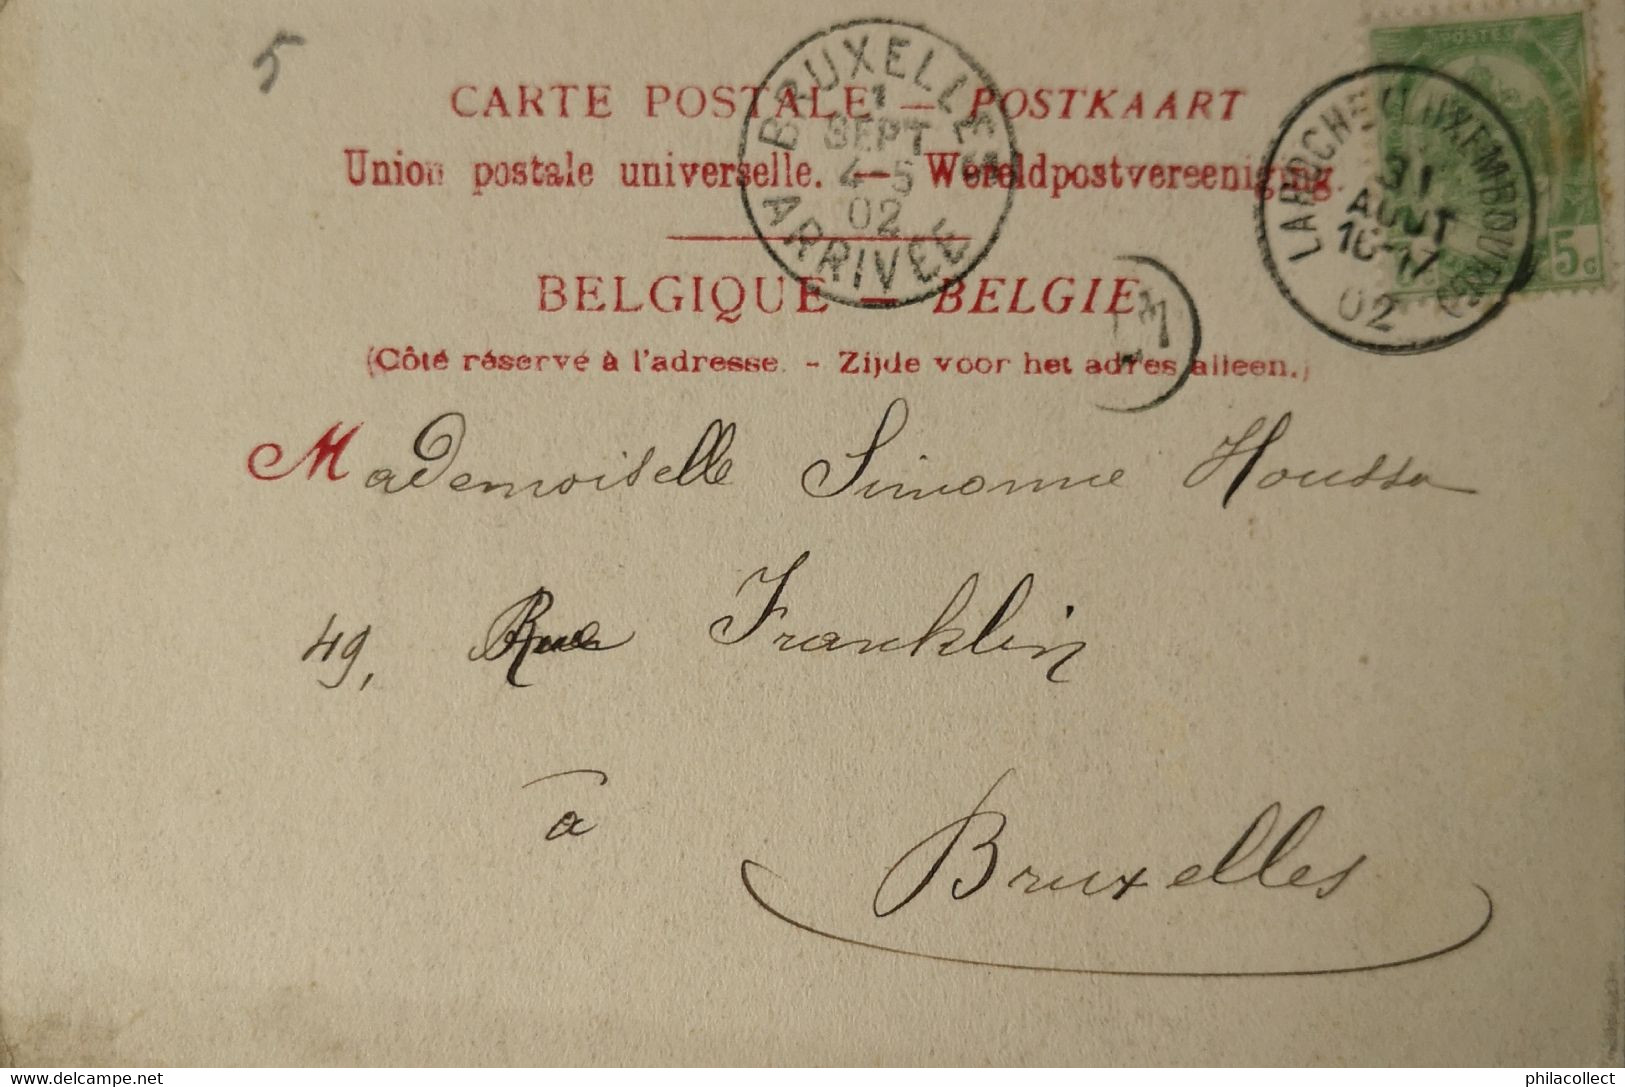 5
CARTE POSTALE — POSTKAART
Union postale universelle. — Wereldpostvereeniging.
BELGIQUE — BELGIE
(Côté réservé à l'adresse. - Zijde voor het adres alleen.)
BRUXELLES
1
SEPT
4-5
02
ARRIVÉE
POSTES
5c
LAROCHE (LUXEMBOURG)
31
AOUT
16-17
02
Mademoiselle Simonne Houssa
49, Rue Franklin
à
Bruxelles
philacollect